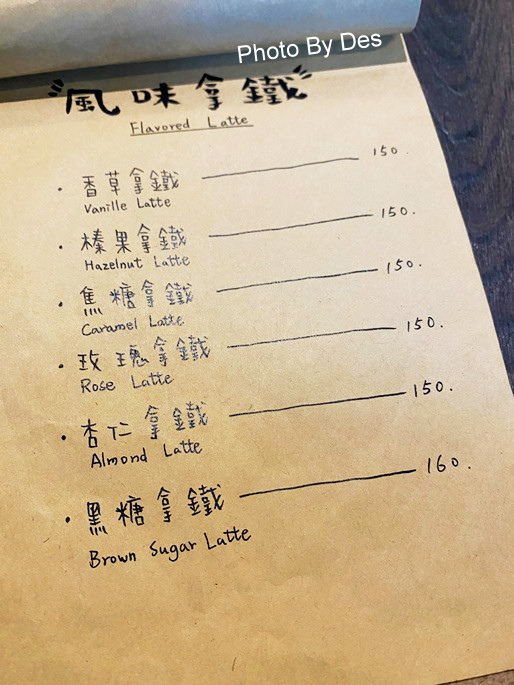 Photo By Des
風味拿鐵
Flavored Latte
· 香草拿鐵 150.
Vanille Latte
· 榛果拿鐵 150.
Hazelnut Latte
· 焦糖拿鐵 150.
Caramel Latte
· 玫瑰拿鐵 150.
Rose Latte
· 杏仁拿鐵 150.
Almond Latte
· 黑糖拿鐵 160.
Brown Sugar Latte